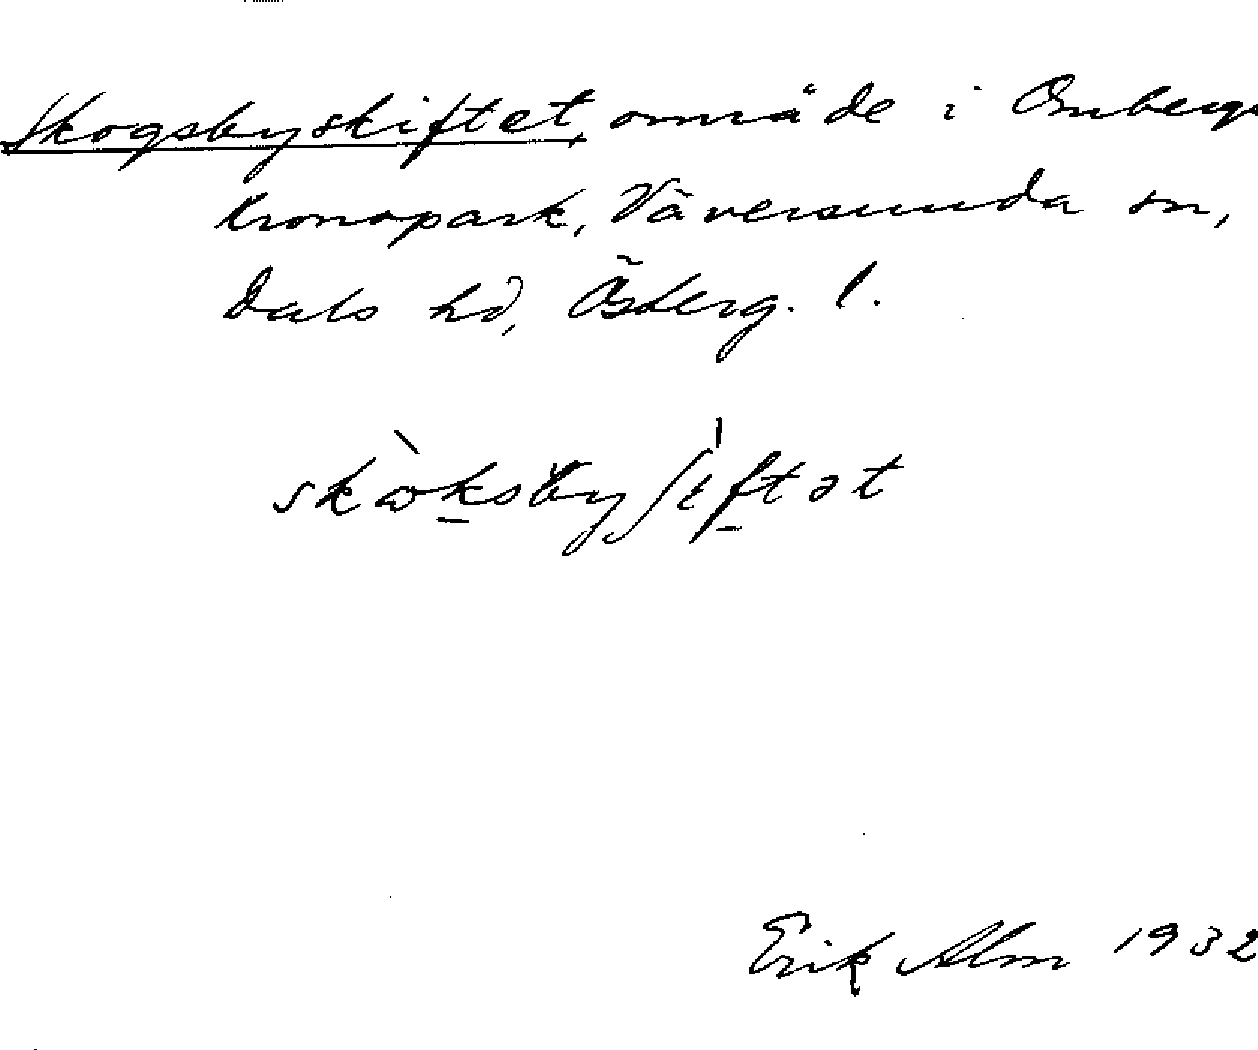 Skogsbyskiftet, område i Ombergs
kronopark, Väversunda sn,
Dals hd, Österg. l.
skὼksby ʃiftət
Erik Alm 1932